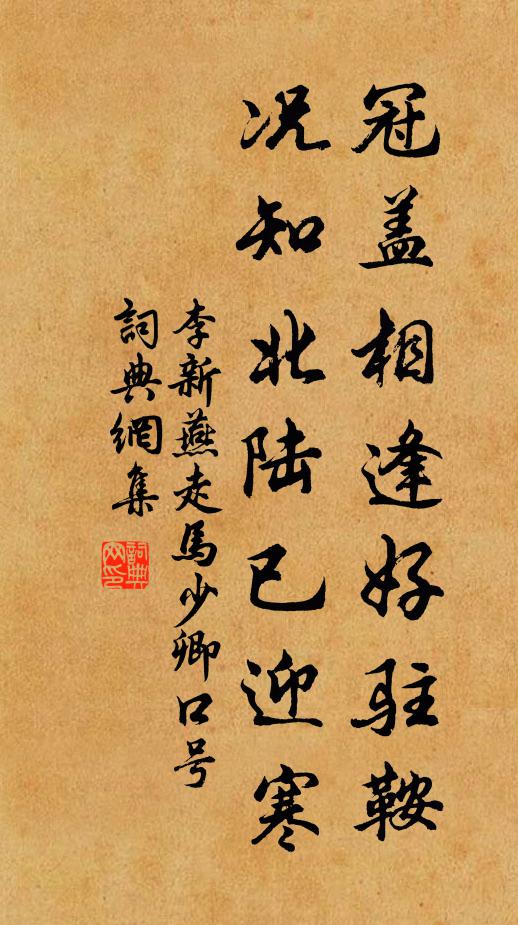 冠盖相逢好驻鞍
况知北陆已迎寒
李新燕走馬少卿口号
詞典網集
詞典網印